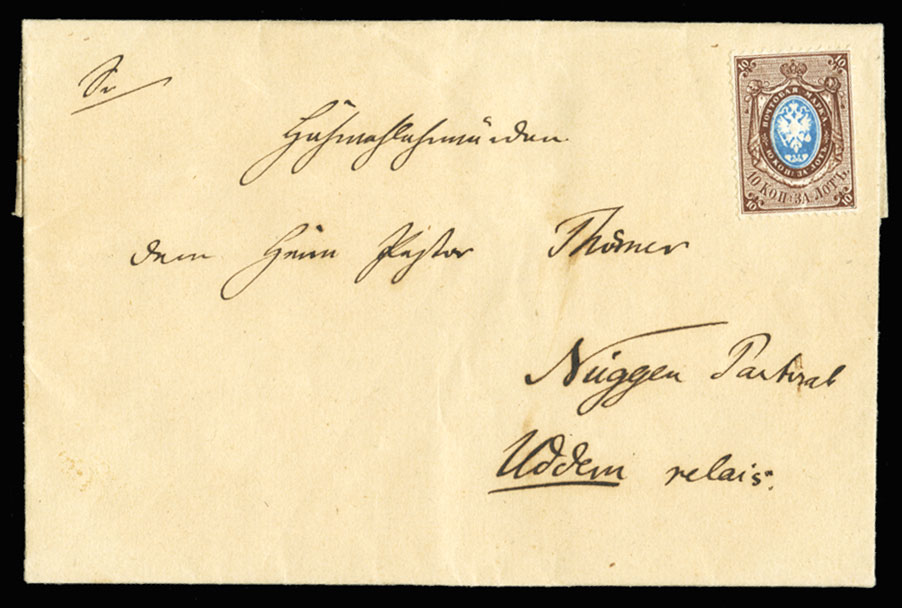 Sr
10 10
ПОЧТОВАЯ МАРКА
10 КОП: ЗА ЛОТЪ.
10 КОП: ЗА ЛОТЪ.
10 10
Hochwohlehrwürden
dem Herrn Pastor Thömer
Nüggen Pastorat
Uddern relais.